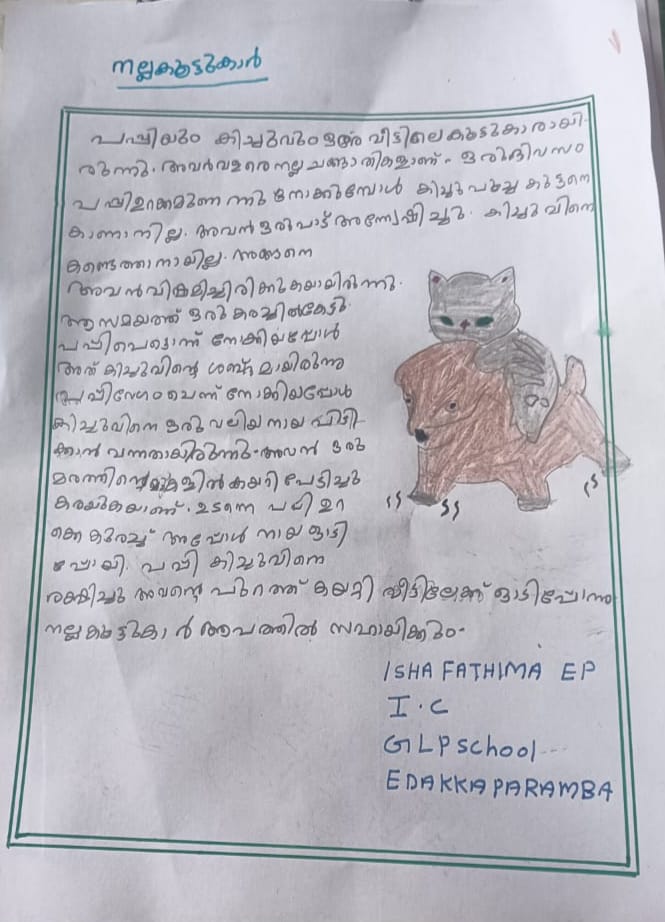 നല്ലകൂട്ടുകാർ
പപ്പിയും കിച്ചുവും ഒരേ വീട്ടിലെ കൂട്ടുകാരായി-
രുന്നു. അവർ വളരെ നല്ല ചങ്ങാതികളാണ്. ഒരു ദിവസം
പപ്പി ഉറക്കമുണർന്നു നോക്കുമ്പോൾ കിച്ചു പൂച്ച കുട്ടനെ
കാണാനില്ല. അവൻ ഒരുപാട് അന്വേഷിച്ചു. കിച്ചുവിനെ
കണ്ടെത്താനായില്ല. അങ്ങനെ
അവൻ വിഷമിച്ചിരിക്കുകയായിരുന്നു.
ആ സമയത്ത് ഒരു കരച്ചിൽകേട്ടു.
പപ്പി പെട്ടൊന്ന് നോക്കിയപ്പോൾ
അത് കിച്ചുവിന്റെ ശബ്ദമായിരുന്നു
പപ്പി വേഗം ചെന്ന് നോക്കിയപ്പോൾ
കിച്ചുവിനെ ഒരു വലിയ നായ പിടി-
ക്കാൻ വന്നതായിരുന്നു. അവൻ ഒരു
മരത്തിന്റെ മുകളിൽ കയറി പേടിച്ചു
കരയുകയാണ്. ഉടനെ പപ്പി ഉറ
ക്കെ കുരച്ചു അപ്പോൾ നായ ഓടി
പ്പോയി. പപ്പി കിച്ചുവിനെ
രക്ഷിച്ചു അവന്റെ പുറത്ത് കയറ്റി വീട്ടിലേക്ക് ഓടിപ്പോന്നു.
നല്ലകൂട്ടുകാർ ആപത്തിൽ സഹായിക്കും.
ISHA FATHIMA EP
I.C
GLP School
EDAKKAPARAMBA